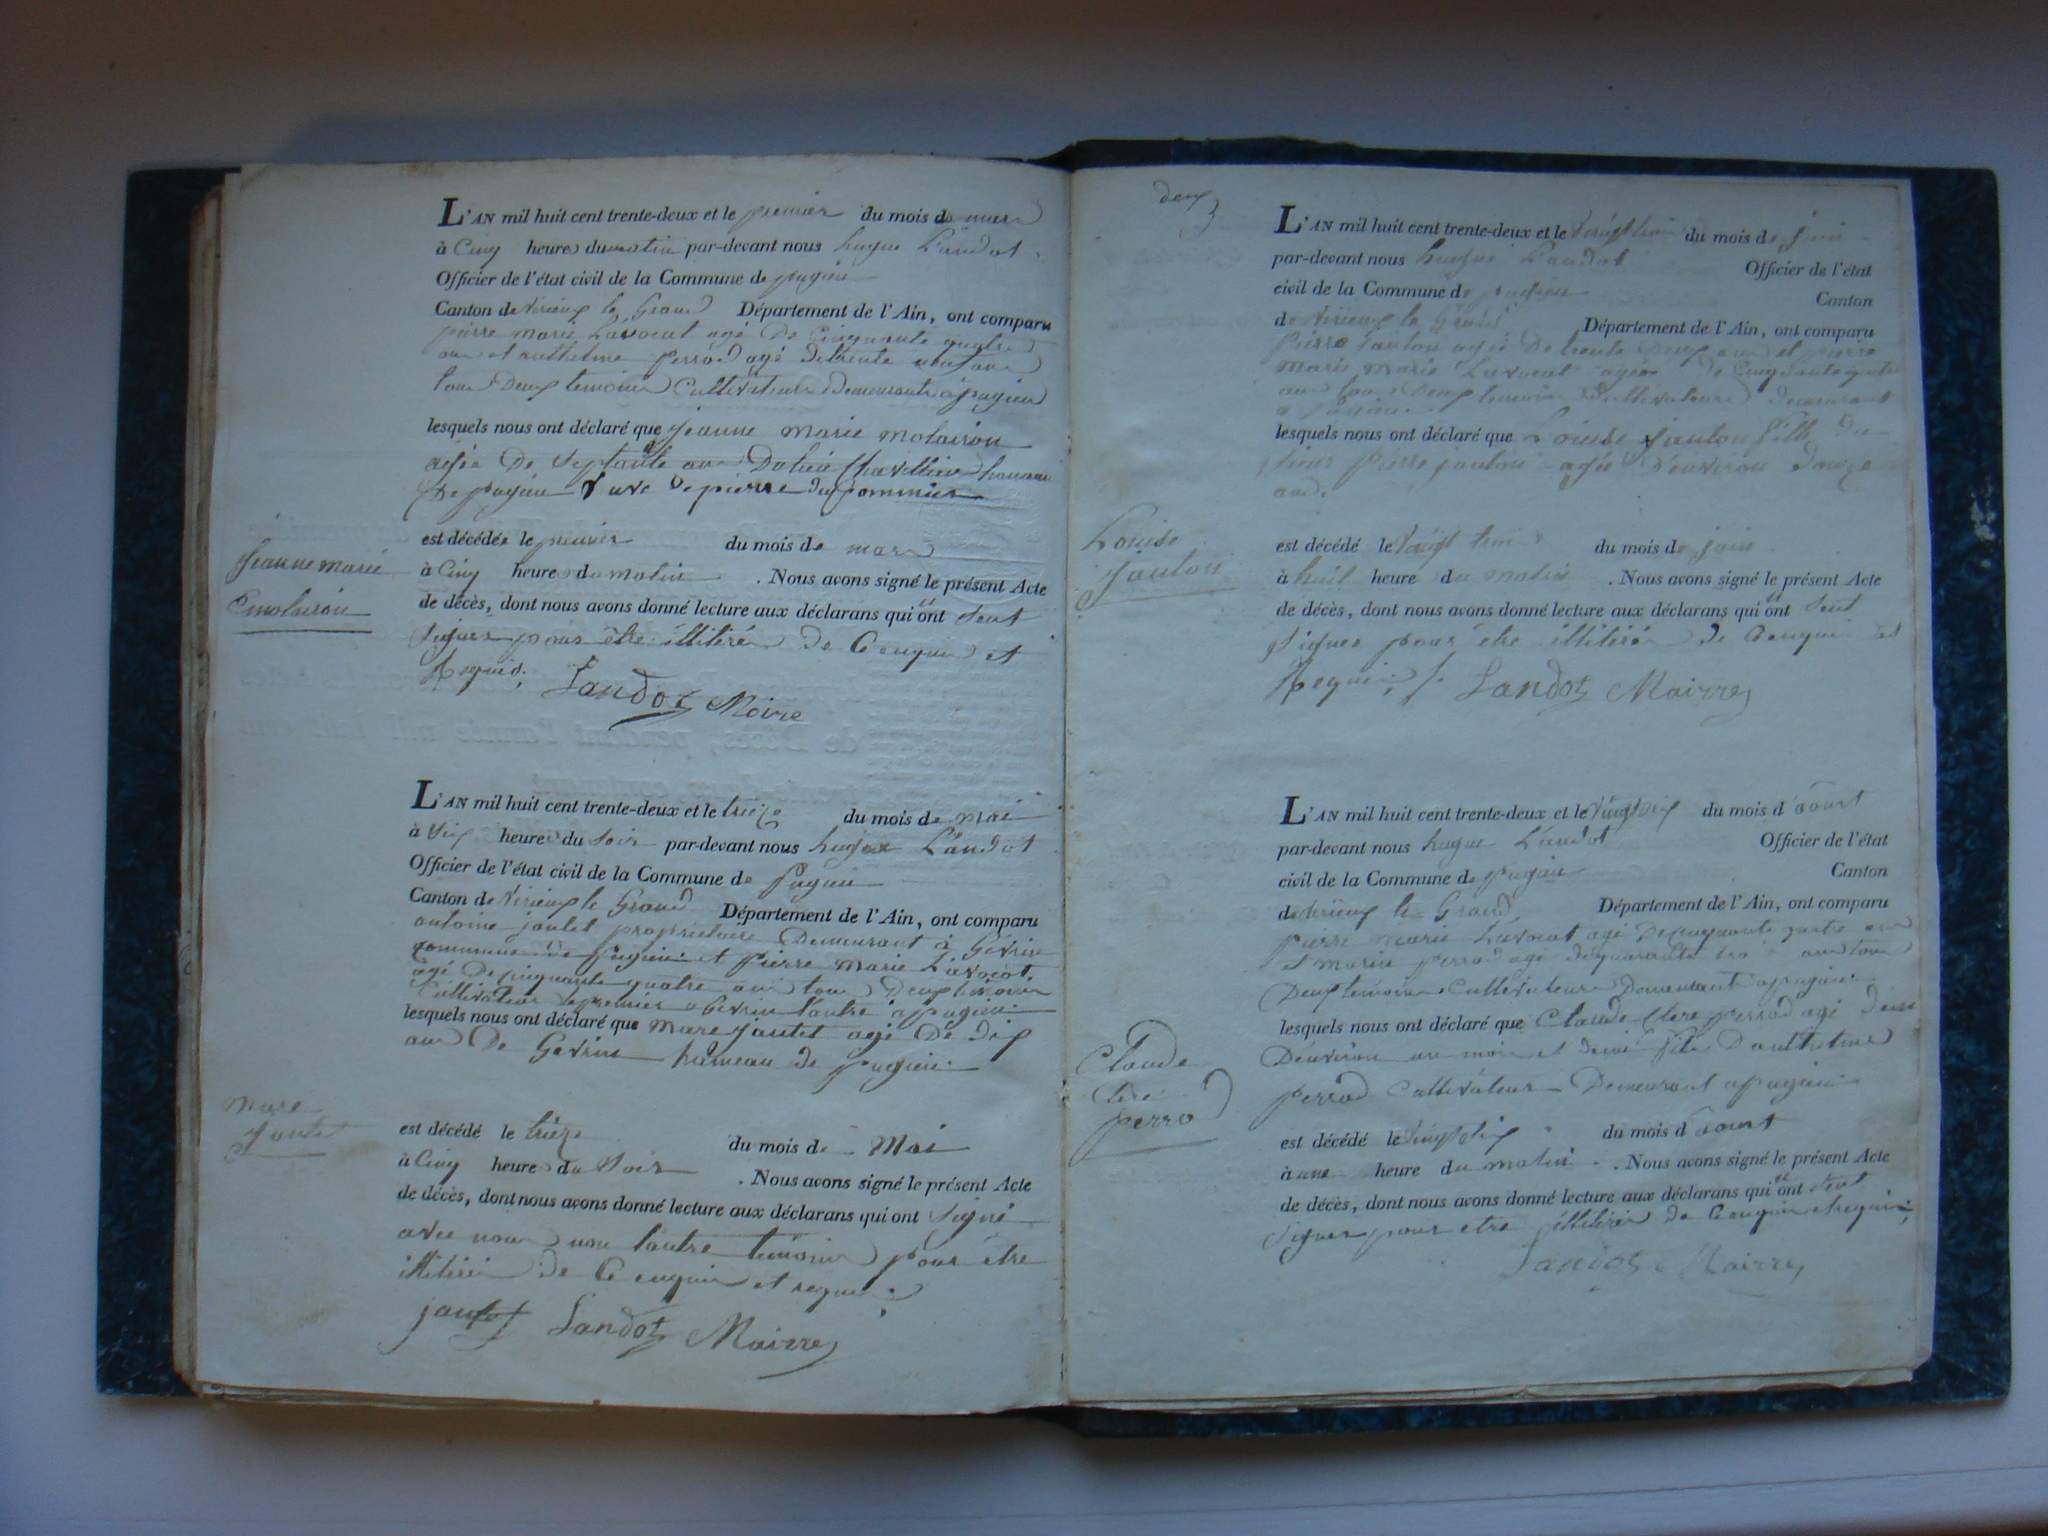 L'AN mil huit cent trente-deux et le premier du mois de mars
à Cinq heures du matin par-devant nous hugue Landot
Officier de l'état civil de la Commune de pugieu
Canton de Virieux le Grand Département de l'Ain, ont comparu
pierre marie Lavocat agé De Cinquante quatre
ans et anthelme perrod agé de trente
tous Deux temoins Cultivateurs Demeurants a pugieu
lesquels nous ont déclaré que jeanne marie molairon
agée De Septante ans hameau
De pugieu Veuve De pierre du pommier
Jeanne marie
molairon
est décédée le premier du mois de mars
à Cinq heure du matin . Nous avons signé le présent Acte
de décès, dont nous avons donné lecture aux déclarans qui n'ont seut
signer pour être illitérés De Ce enquis et
Requis.
Landot Maire
L'AN mil huit cent trente-deux et le trieze du mois de mai
à Six heures du soir par-devant nous hugue Landot
Officier de l'état civil de la Commune de Pugieu
Canton de Virieux le Grand Département de l'Ain, ont comparu
antoine jantet proprietaire Demeurant à Gevrin
Commune de pugieu et Pierre marie Lavocat
agé De cinquante quatre ans tous Deux temoins
Cultivateurs premier a Gevrin l'autre a pugieu
lesquels nous ont déclaré que marc jantet agé De dix
ans De Gevrin hameau de pugieu
marc
jantet
est décédé le trieze du mois de Mai
à Cinq heure du soir . Nous avons signé le présent Acte
de décès, dont nous avons donné lecture aux déclarans qui ont signé
avec nous non l'autre temoin pour être
illitéré De Ce enquis et requis
jantet Landot Mairre
deux
L'AN mil huit cent trente-deux et le vingt trois du mois de juin
par-devant nous hugue Landot Officier de l'état
civil de la Commune de pugieu Canton
de Virieux le Grand Département de l'Ain, ont comparu
Pierre janton agé De trente ans et pierre
marie Lavocat agé De Cinquante quatre
ans tous Deux temoins Cultivateurs Demeurant
a pugieu
lesquels nous ont déclaré que Louise janton fille du
sieur Pierre janton agée D'environ douze
ans.
Louise
Janton
est décédé le vingt trois du mois de juin
à huit heure du matin . Nous avons signé le présent Acte
de décès, dont nous avons donné lecture aux déclarans qui n'ont seut
signer pour être illitérés De Ce enquis et
Requis
Landot Mairre
L'AN mil huit cent trente-deux et le vingt six du mois d'aoust
par-devant nous hugue Landot Officier de l'état
civil de la Commune de pugieu Canton
de Virieux le Grand Département de l'Ain, ont comparu
pierre marie Lavocat agé De cinquante quatre ans
et marin perrod agé De quarante trois ans tous
Deux temoins Cultivateurs Demeurant a pugieu
lesquels nous ont déclaré que Claude Clere perrod agé
D'environ un mois et demi fils D'anthelme
perrod Cultivateur Demeurant a pugieu
Claude
Clere
perrod
est décédé le vingt six du mois d'aoust
à une heure du matin . Nous avons signé le présent Acte
de décès, dont nous avons donné lecture aux déclarans qui n'ont seut
signer pour etre illitérés De Ce enquis et requis
Landot Mairre